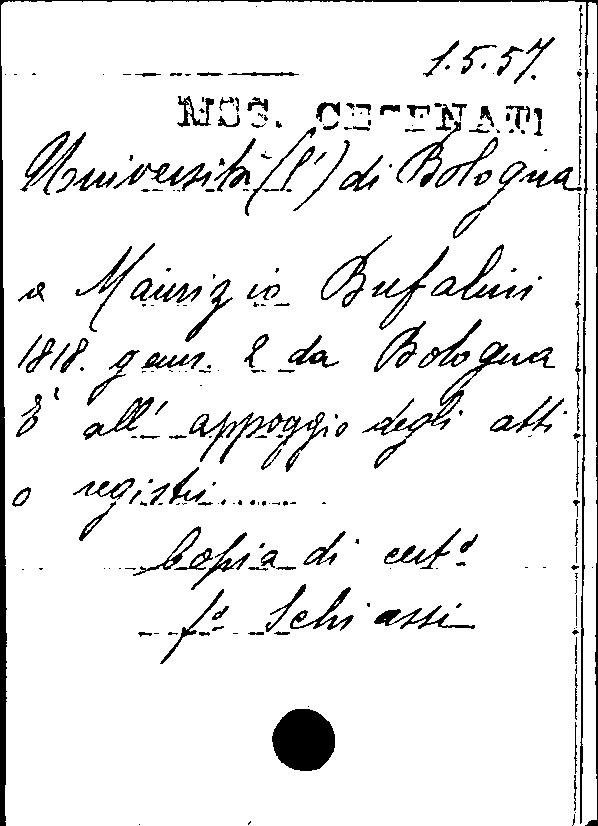 1.5.57.
MSS. CESENATI
Università (l') di Bologna
a Maurizio Bufalini
1818. genn. 2 da Bologna
È all' appoggio degli atti
o registri......
Copia di cert°
f° Schiassi